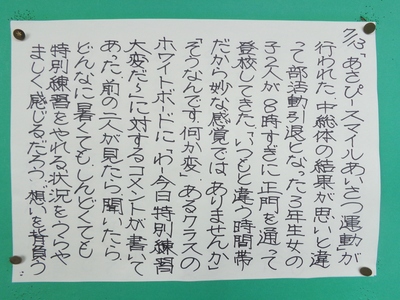 7/13「あさぴースマイルあいさつ運動」が
行われた。中総体の結果が思いと違
って部活動引退となった3年生女の
子2人が8時すぎに正門を通って
登校してきた。「いつもと違う時間帯
だから妙な感覚では、ありませんか」
「そうなんです。何か変」あるクラスの
ホワイトボードに「わー今日特別練習
大変だ～」に対するコメントが書いて
あった。前の二人が見たら、聞いたら
どんなに暑くてもしんどくても
特別練習をやれる状況をうらや
ましく感じるだろう。"想い"を背負う